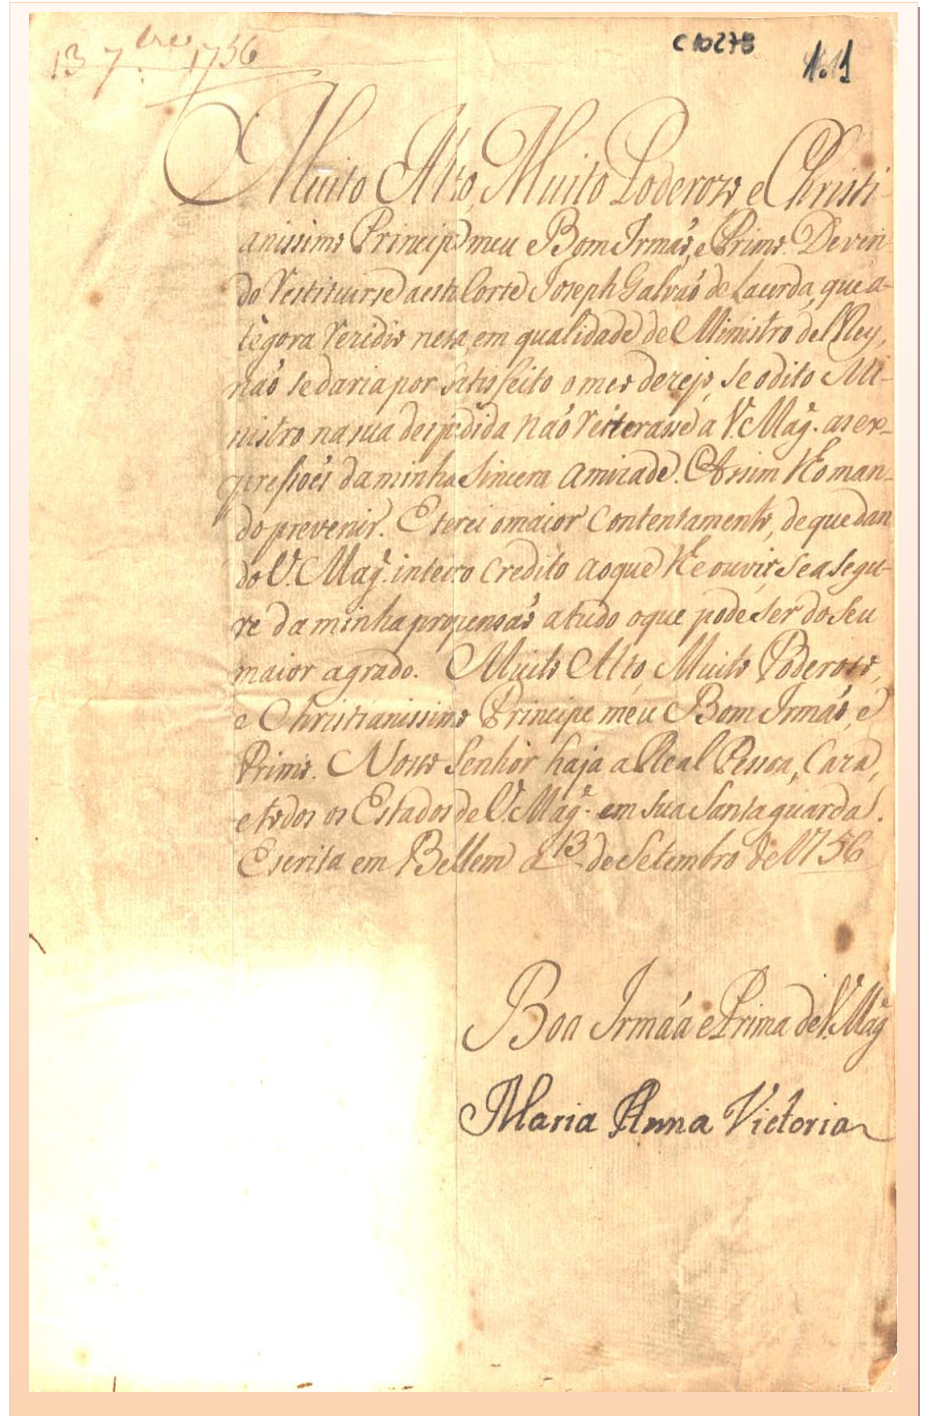 13 7bre 1756
C 10278
Muito Alto, Muito Poderozo e Christi-
anissimo Principe meu e Bom Irmaõ, e Primo. Devin
do restituirse a esta Corte Joseph Galvaõ de Lacerda, que a-
tègora rezidio nesa, em qualidade de Ministro delRey,
naõ se daria por satisfeito o meo dezejo, se o dito Mi-
nistro na sua despedida naõ reiterasse a V. Mag.e as ex-
pressoẽs da minha sincera amizade. Assim lho man-
do prevenir. E terei o maior contentamento, de que dan
do V. Mag.e inteiro credito ao que lhe ouvir se asegu-
re da minha propensaõ a tudo o que pode ser do seu
maior agrado. Muito Alto, Muito Poderozo,
e Christianissimo Principe meu Bom Irmaõ, e
Primo. Nosso Senhor haja a Real Pessoa, Caza,
e todos os Estados de V. Mag.e em sua Santa guarda.
Escrita em Bellem a 13 de Setembro de 1756
Boa Irmãa e Prima de V. Mag.e
Maria Anna Victoria